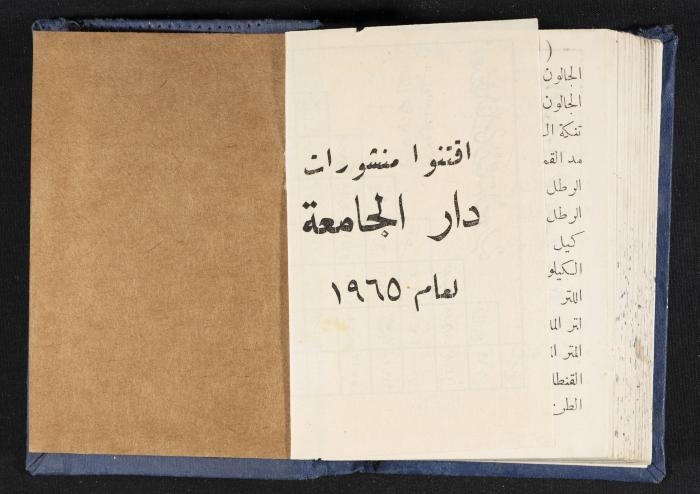 اقتنوا منشورات
دار الجامعة
لعام ١٩٦٥
(
الجالون
الجالون
تنكة ال
مد القم
الرطل
الرطل
كيل
الكيلو
اللتر
المتر ال
القنطا
الطن